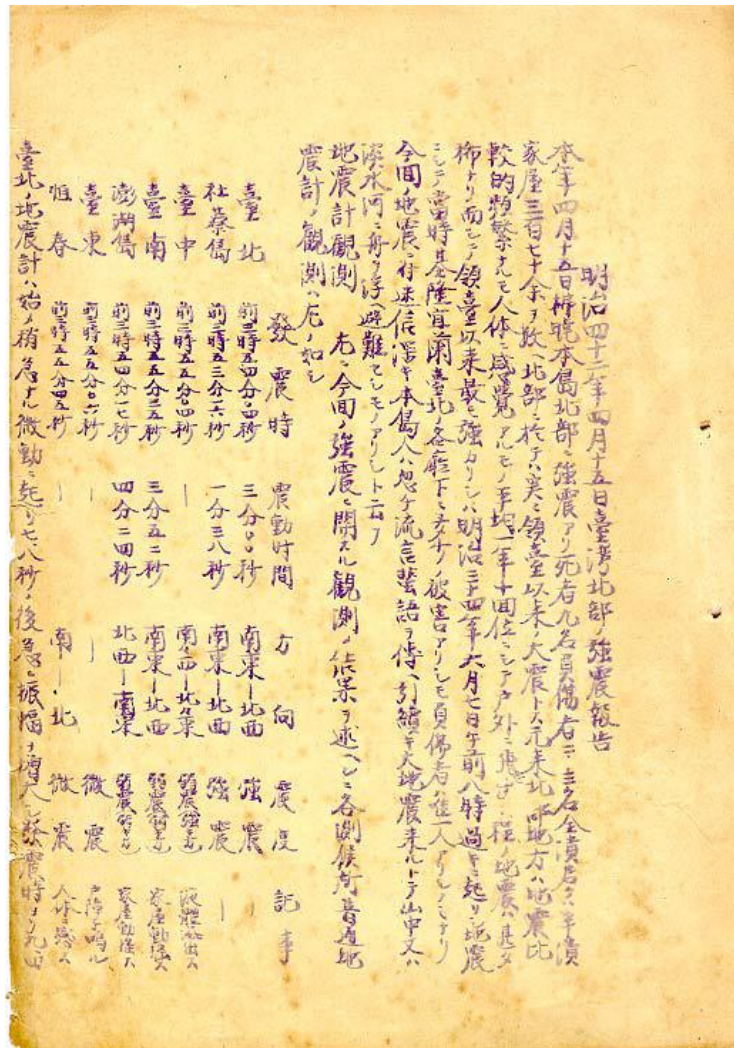 明治四十二年四月十五日臺灣北部ノ強震報告
本年四月十五日拂曉本島北部ニ強震アリ死者九名負傷者二十三名全潰若クハ半潰
家屋三百七十余ヲ致ヘ北部ニ於テハ実ニ領臺以来ノ大震トス元来北部地方ハ地震比
較的頻繁ナルモ人体ニ感覺アルモノ平均一年十回位ニシテ戸外ニ飛出ス程ノ地震ハ甚タ
稀ナリ而シテ領臺以来最モ強カリシハ明治三十四年六月七日午前八時過キニ起リシ地震
ニシテ當時基隆宜蘭臺北ノ各廳下ニ多少ノ被害アリシモ負傷者ハ僅一人アリシノミナリ
今回ノ地震ニ付迷信深キ本島人ハ忽チ流言蜚語ヲ傳ヘ引續キ大地震来ルトテ山中又ハ
淡水河ニ舟ヲ浮ヘ避難セシモノアリシト云フ
地震計観測 左ニ今回ノ強震ニ関スル観測ノ結果ヲ述ヘンニ各測候所普通地
震計ノ観測ハ左ノ如シ
發震時 震動時間 方向 震度 記事
臺北 前三時五四分〇四秒 三分〇〇秒 南東ー北西 強震 ー
社藔島 前三時五三分一六秒 一分三八秒 南東ー北西 強震 ー
臺中 前三時五五分〇四秒 ー 南西ー北東 弱震
臺南 前三時五五分三五秒 三分五二秒 南東ー北西 弱震 家屋動揺ス
澎湖島 前三時五四分一七秒 四分二四秒 北西ー南東 弱震 家屋動揺ス
臺東 前三時五五分〇六秒 ー ー 微震 戸障子鳴ル
恒春 前三時五五分四五秒 ー 南ー北 微震 人体ニ感ス
臺北ノ地震計ハ始メ稍急ナル微動ニ起リ七、八秒ノ後急ニ振幅ヲ増大シ發震時ヨリ